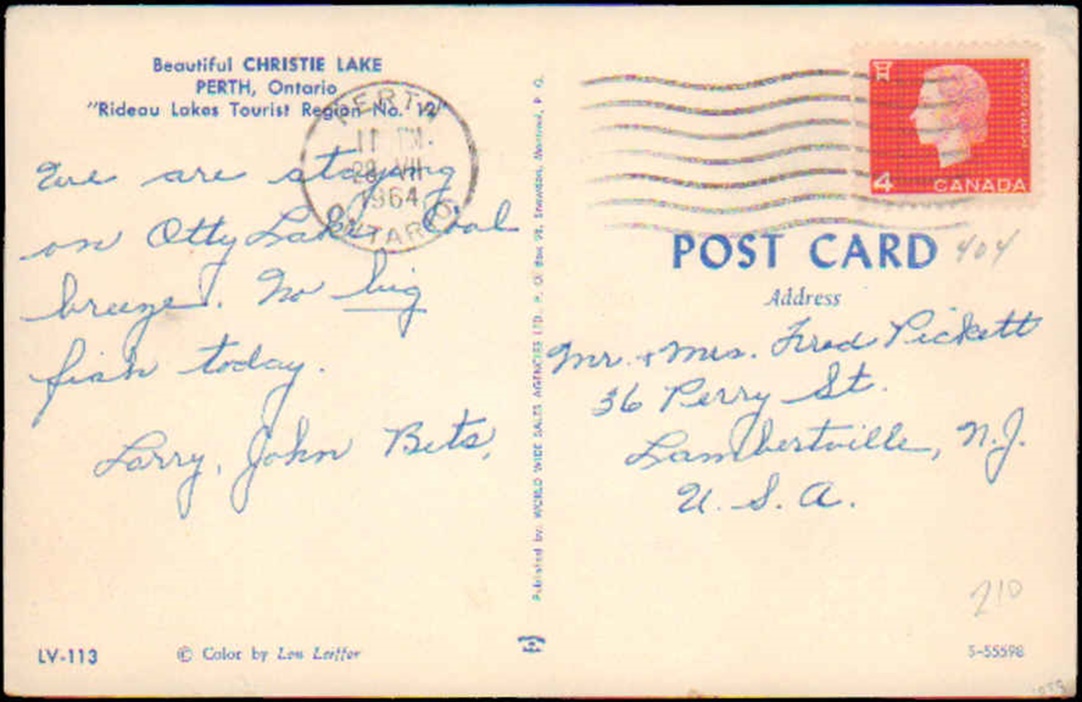 Beautiful CHRISTIE LAKE
PERTH, Ontario
"Rideau Lakes Tourist Region No. 12"
PERTH
11
1964
ONTARIO
We are staying
on Otty Lake. Cool
breeze. No big
fish today.
Larry, John Bets.
LV-113
© Color by Len Leiffer
Published by: WORLD WIDE SALES AGENCIES LTD. P. O. Box 98, Snowdon, Montreal, P. Q.
4 CANADA
POSTES POSTAGE
POST CARD
404
Address
Mr. + Mrs. Fred Pickett
36 Perry St.
Lambertville, N.J.
U. S. A.
210
S-55598